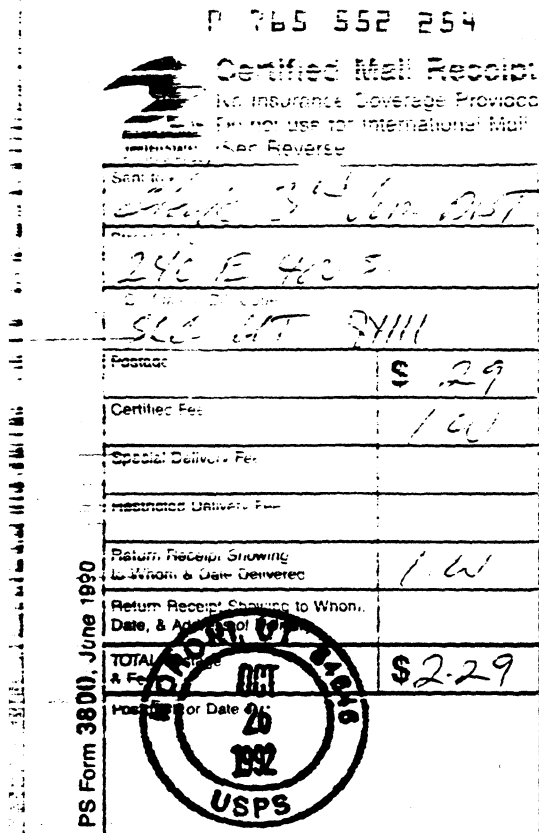 P 765 552 254
Certified Mail Receipt
No Insurance Coverage Provided
Do not use for International Mail
(See Reverse)
Sent to
3rd Jun DIST
240 E 400 S.
SLC UT 84111
Postage
$ .29
Certified Fee
1.00
Special Delivery Fee
Restricted Delivery Fee
Return Receipt Showing
to Whom & Date Delivered
1.00
Return Receipt Showing to Whom,
Date, & Address of
TOTAL Postage
& Fees
$ 2.29
Postmark or Date
MORONI, UT 84646
OCT
26
1992
USPS
PS Form 3800, June 1990